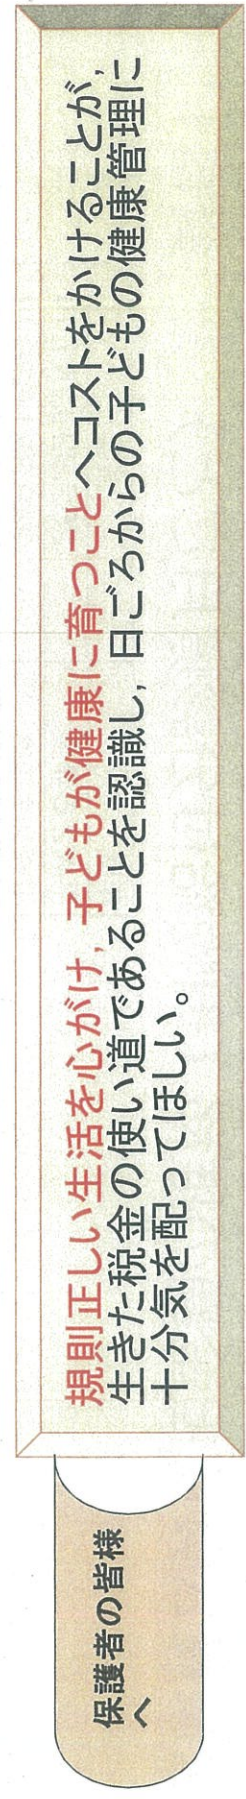 保護者の皆様
へ
規則正しい生活を心がけ，子どもが健康に育つことへコストをかけることが，
生きた税金の使い道であることを認識し，日ごろからの子どもの健康管理に
十分気を配ってほしい。